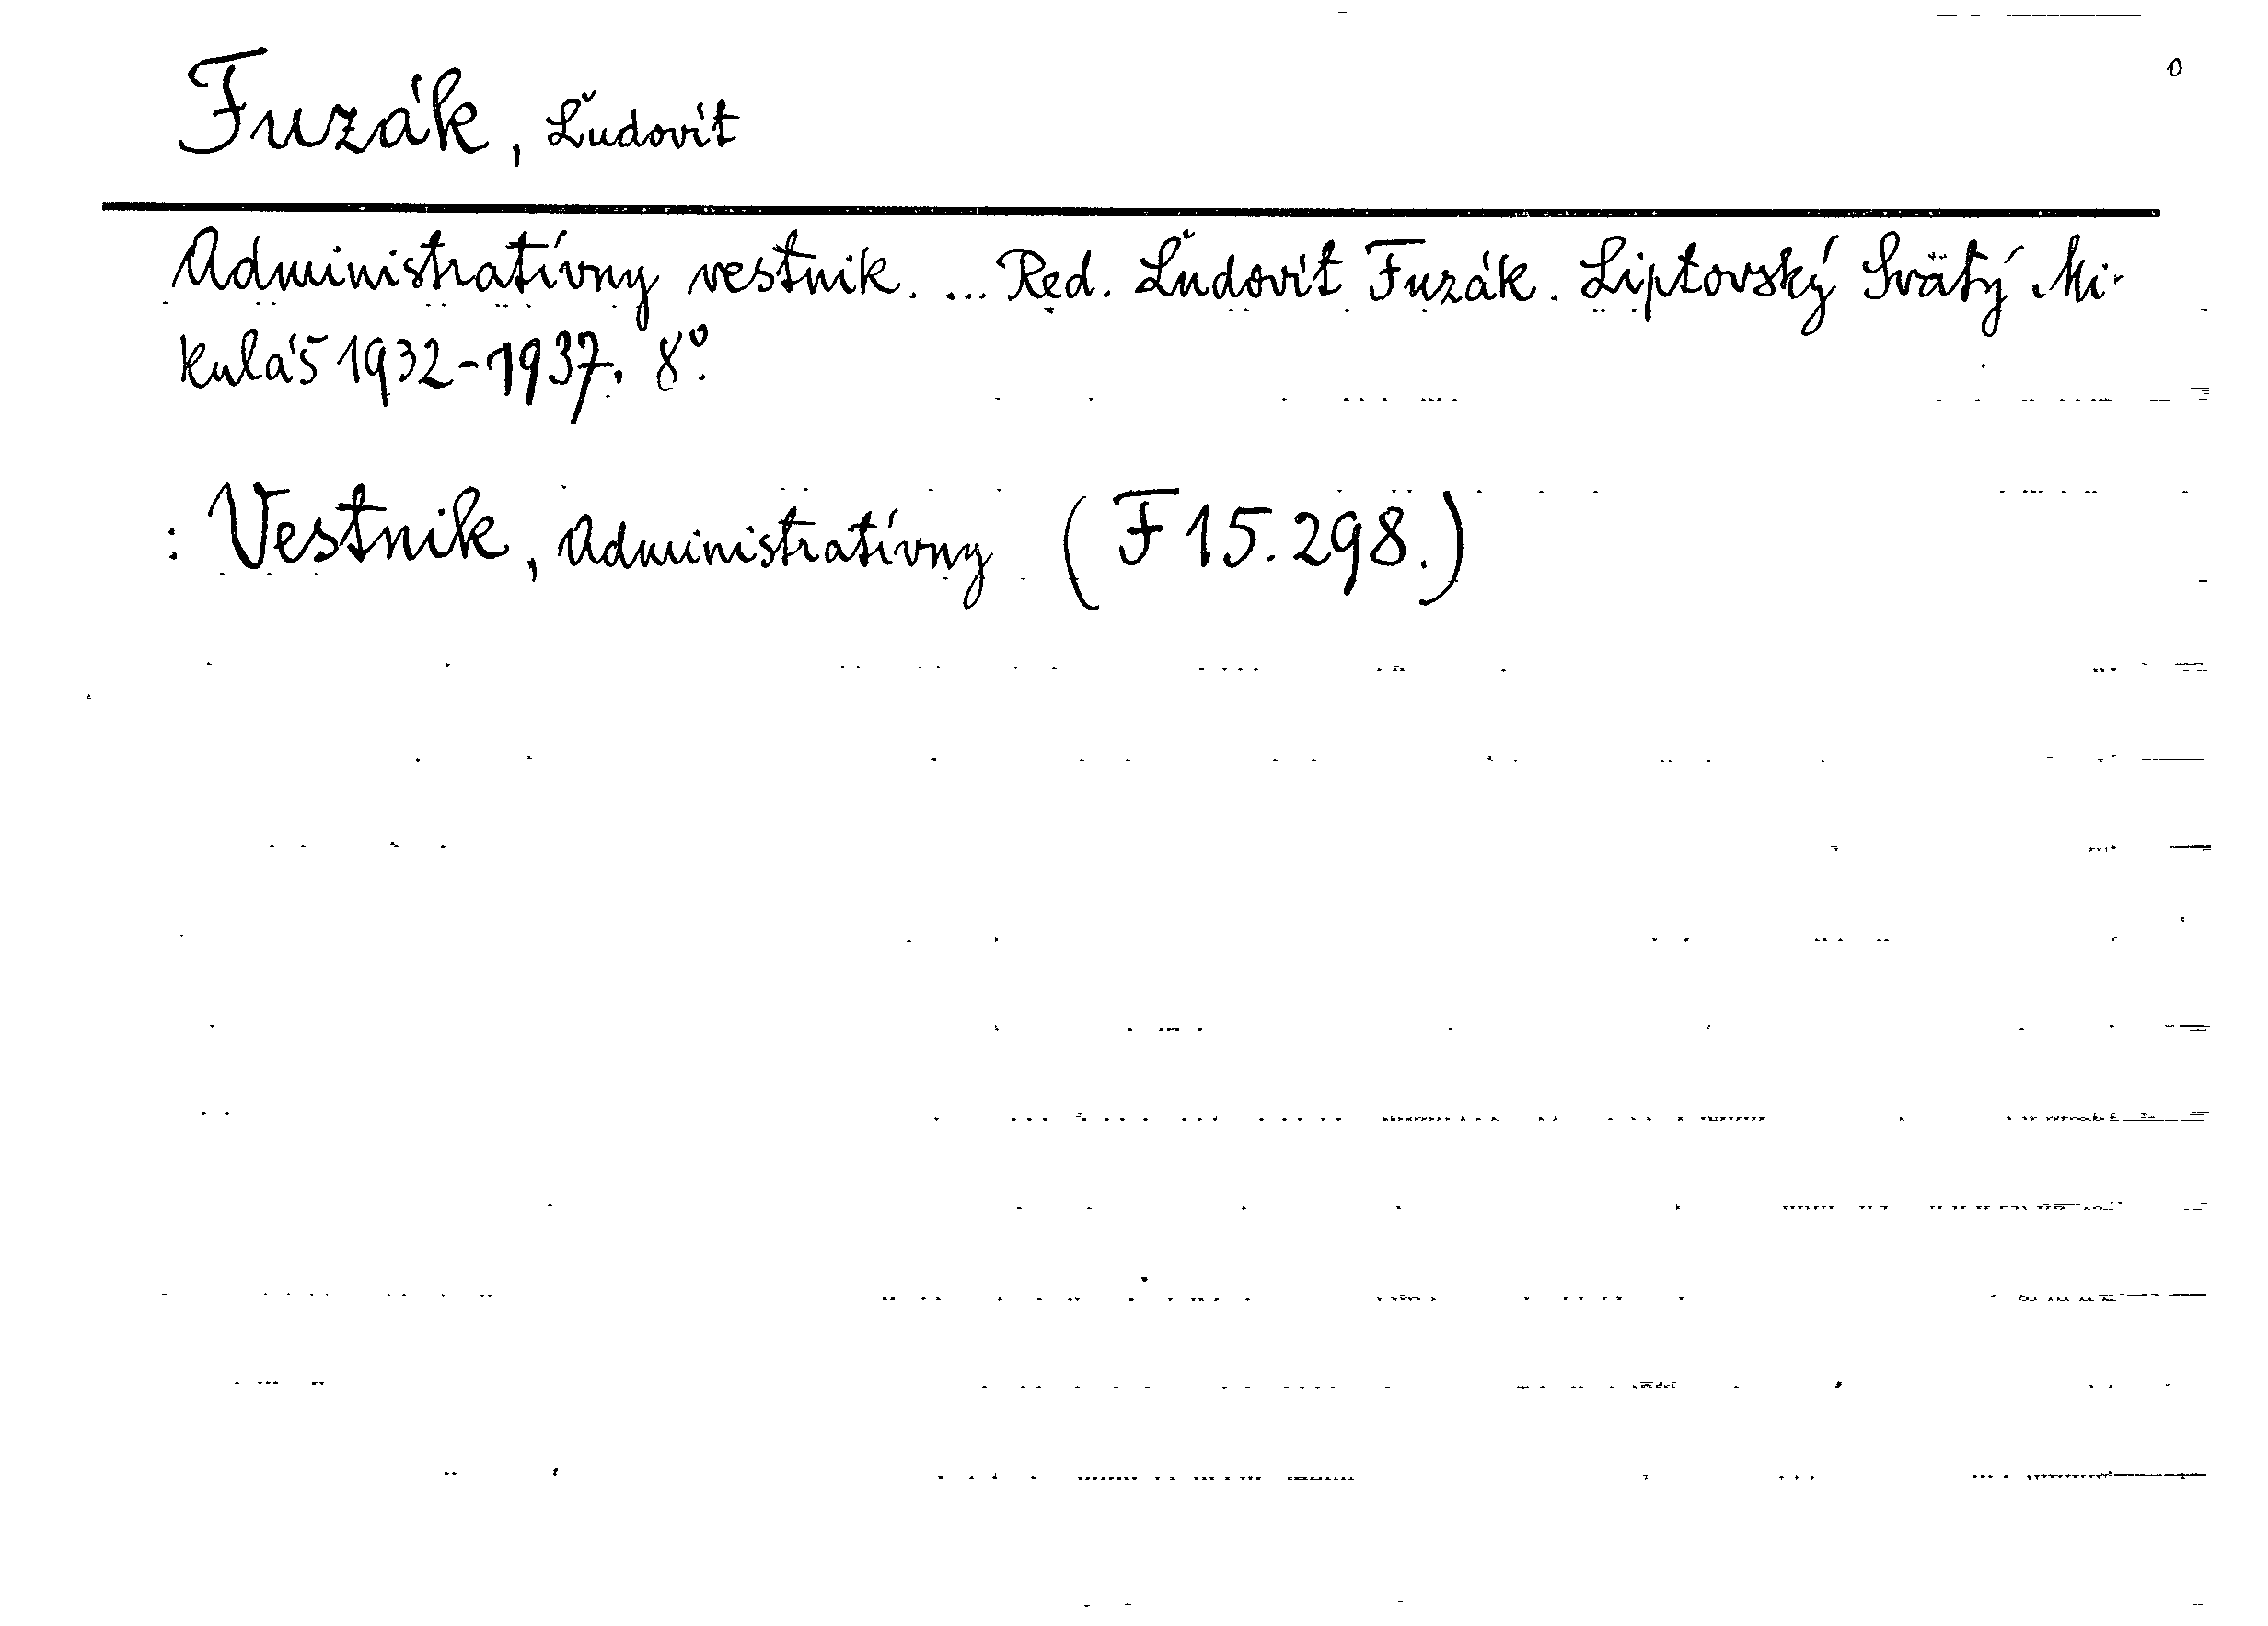 Fuzák, Ľudovít
Administratívny vestnik. ... Red. Ľudovít Fuzák. Liptovský Svätý Mi-
kuláš 1932-1937. 8º.
: Vestnik, Administratívny (F 15.298.)